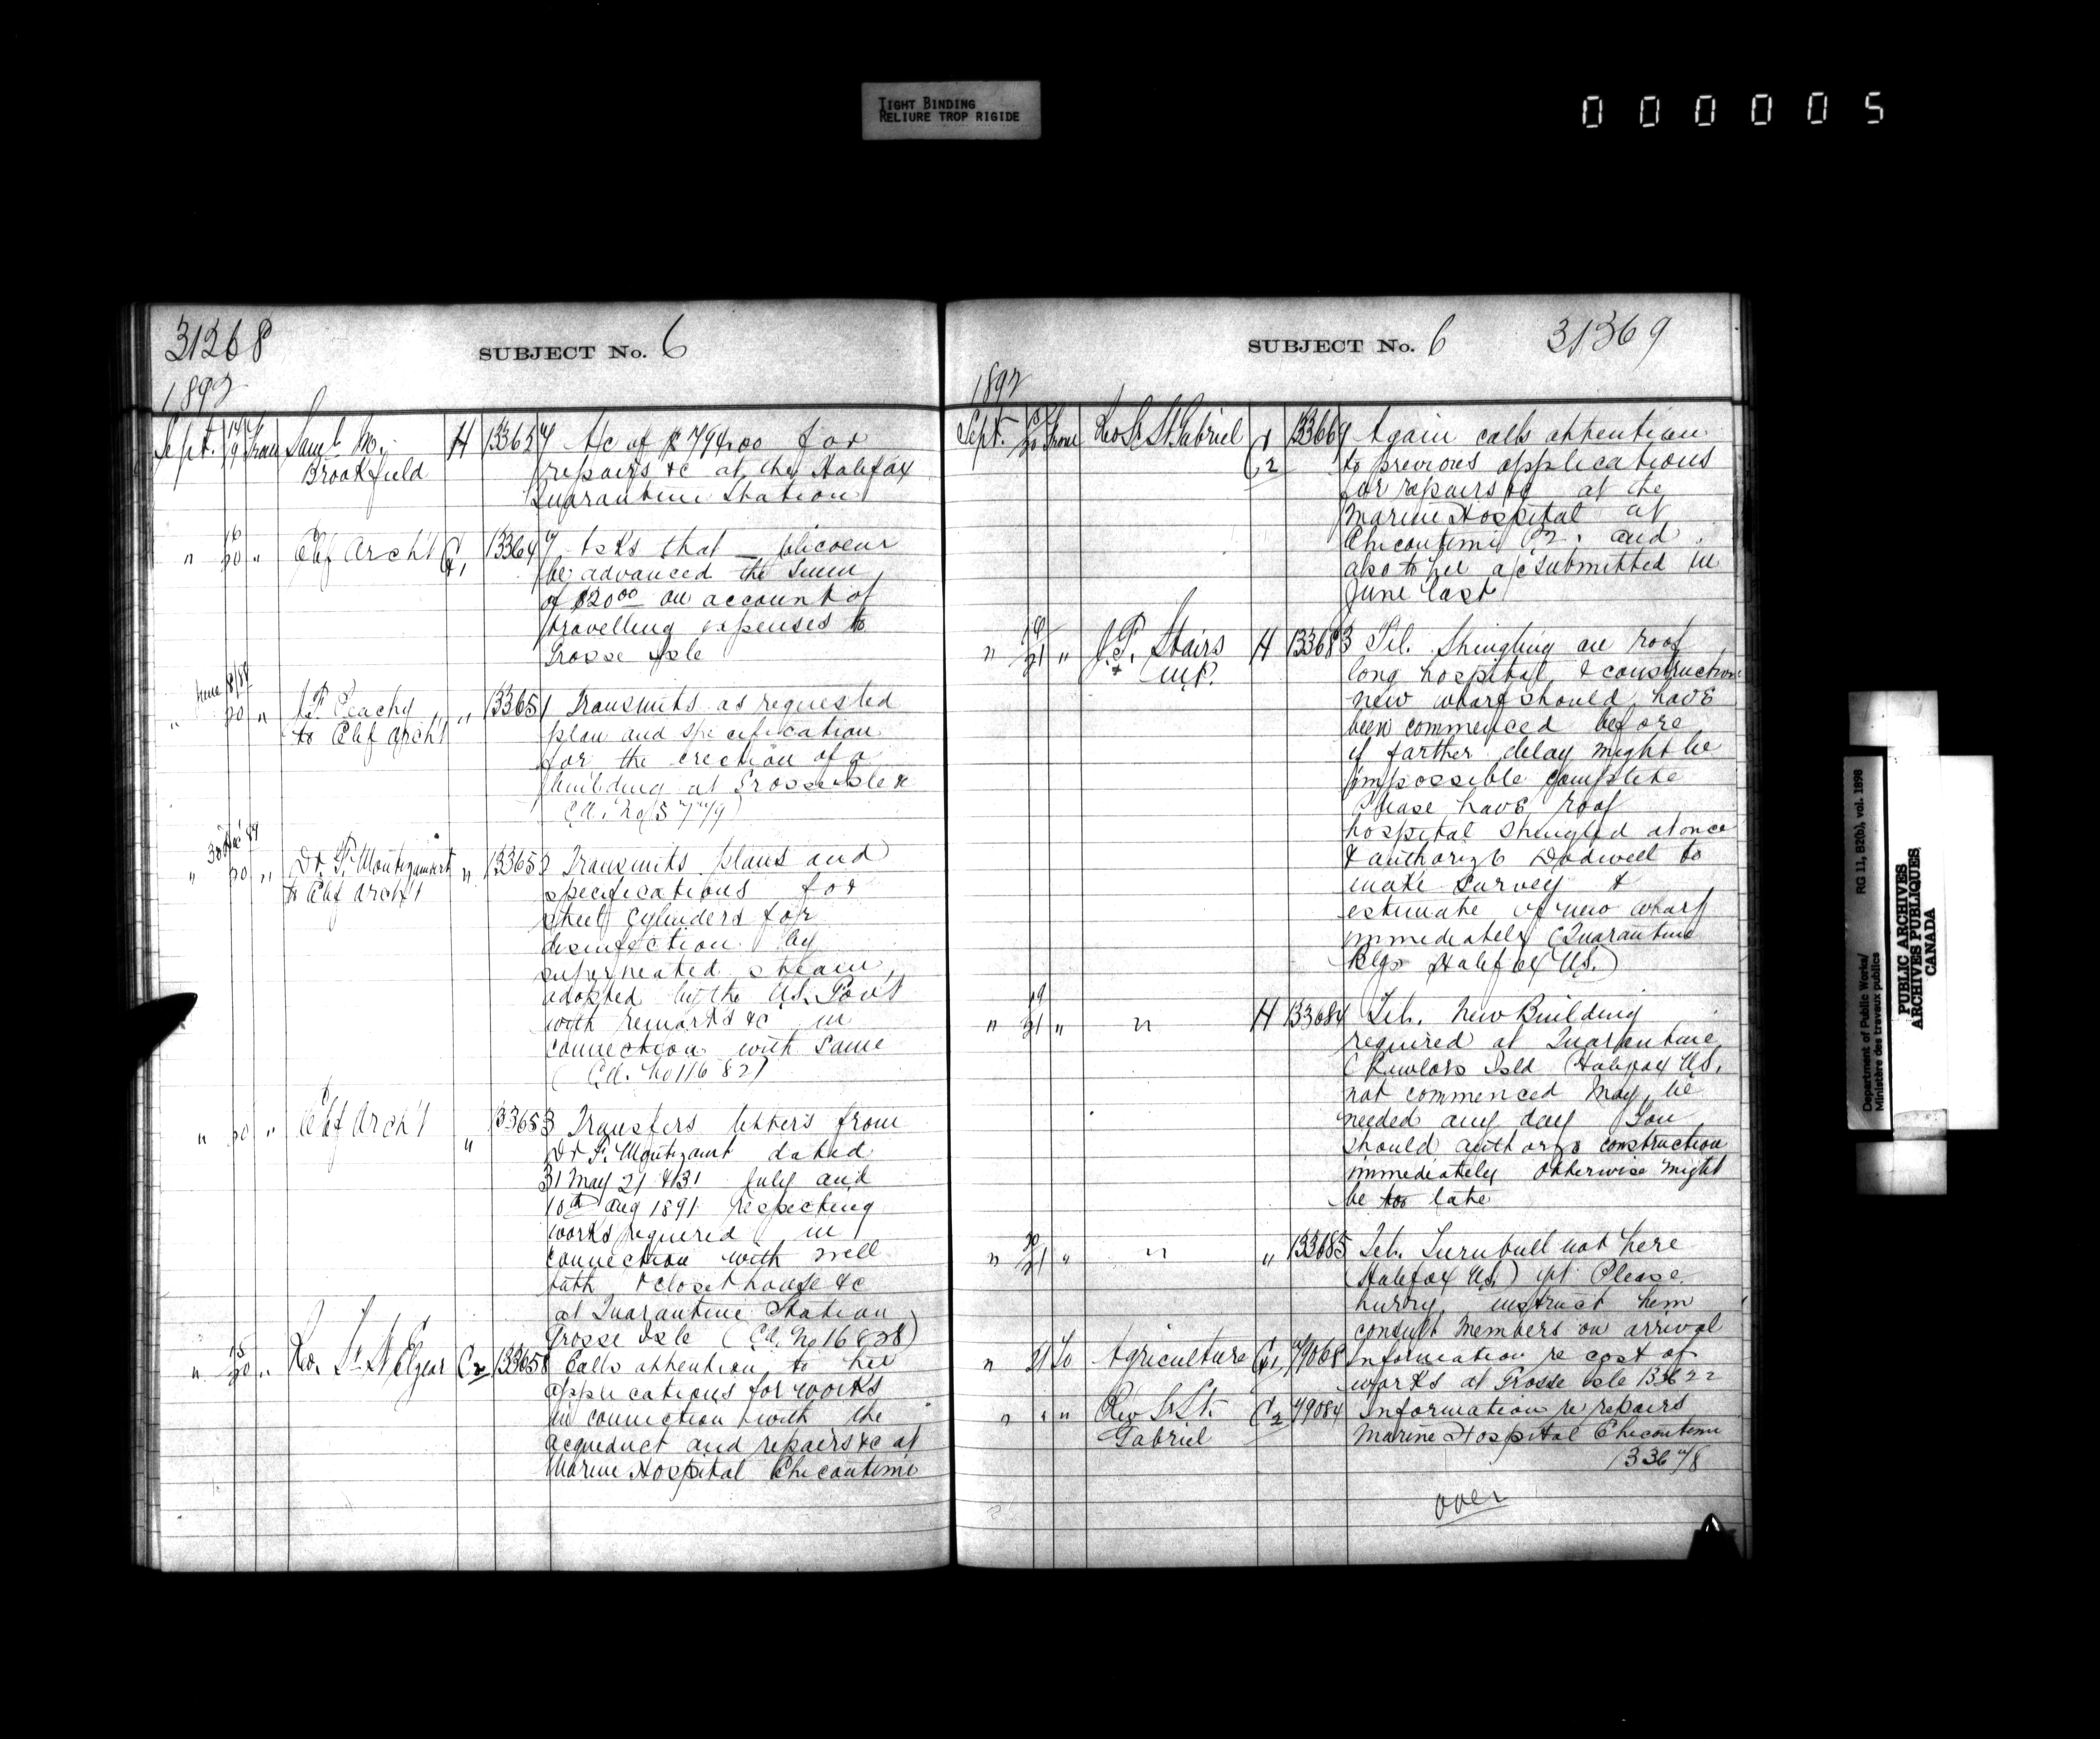 TIGHT BINDING
RELIURE TROP RIGIDE
000005
31268
SUBJECT No. 6
1892
Sept. 14/19 From Saml. M. Brookfield H 133637 A/c of $794.00 for
repairs &c at the Halifax
Quarantine Station
" 16/20 " Chf Arch't G1 133647 Asks that _ Blicoeur
be advanced the sum
of $20.00 on account of
travelling expenses to
Grosse Isle
June
" 20 " J.F. Peachy to Chf Arch't " 133651 Transmits as requested
plan and specification
for the erection of a
building at Grosse Isle &
" 20 " Dr. F. Montizambert to Chf Arch't " 133652 Transmits plans and
specifications for
steel cylinders for
disinfection by
superheated steam,
adopted by the U.S. Gov't
with remarks &c in
connection with same
(Ca. No 11682)
" 20 " Chf Arch't " 133653 Transfers letters from
Dr F. Montizamt dated
31 May 21 & 31 July and
10th Aug 1891 respecting
works required in
connection with well
bath & closet house &c
at Quarantine Station
Grosse Isle (Ca. No 16828)
" 15/20 " Rev. Sr. St Elzear C2 133658 Calls attention to her
applications for works
in connection with the
acqueduct and repairs &c at
Marine Hospital Chicoutimi
SUBJECT No. 6
31369
1892
Sept. 20 From Rev Sr St Gabriel C2 133669 Again calls attention
to previous applications
for repairs &c at the
Marine Hospital at
Chicoutimi P.2. and
also to her a/c submitted in
June last
" 18/21 " J.F. Stairs M.P. H 133683 Tel. Shingling on roof
long hospital & construction
new wharf should have
been commenced before
if farther delay might be
impossible complete
Please have roof
hospital shingled at once
& authorize Dodwell to
make survey &
estimate of new wharf
immediately (Quarantine
Blgs Halifax N.S.)
" 19/21 " " H 133684 Tel. New Building
required at Quarantine
(Lawlors Isld Halifax N.S.
not commenced May be
needed any day You
should authorize construction
immediately otherwise might
be too late
" 20/21 " " " 133685 Tel. Turnbull not here
(Halifax N.S.) yet Please
hurry, instruct him
consult Members on arrival
" 21 To Agriculture G1 79068 Information re cost of
works at Grosse Isle 133622
" " " Rev Sr St. Gabriel C2 79084 Information re repairs
Marine Hospital Chicoutimi
133678
over
Department of Public Works/ RG 11, B2(b), vol. 1898
Ministère des travaux publics
PUBLIC ARCHIVES
ARCHIVES PUBLIQUES
CANADA